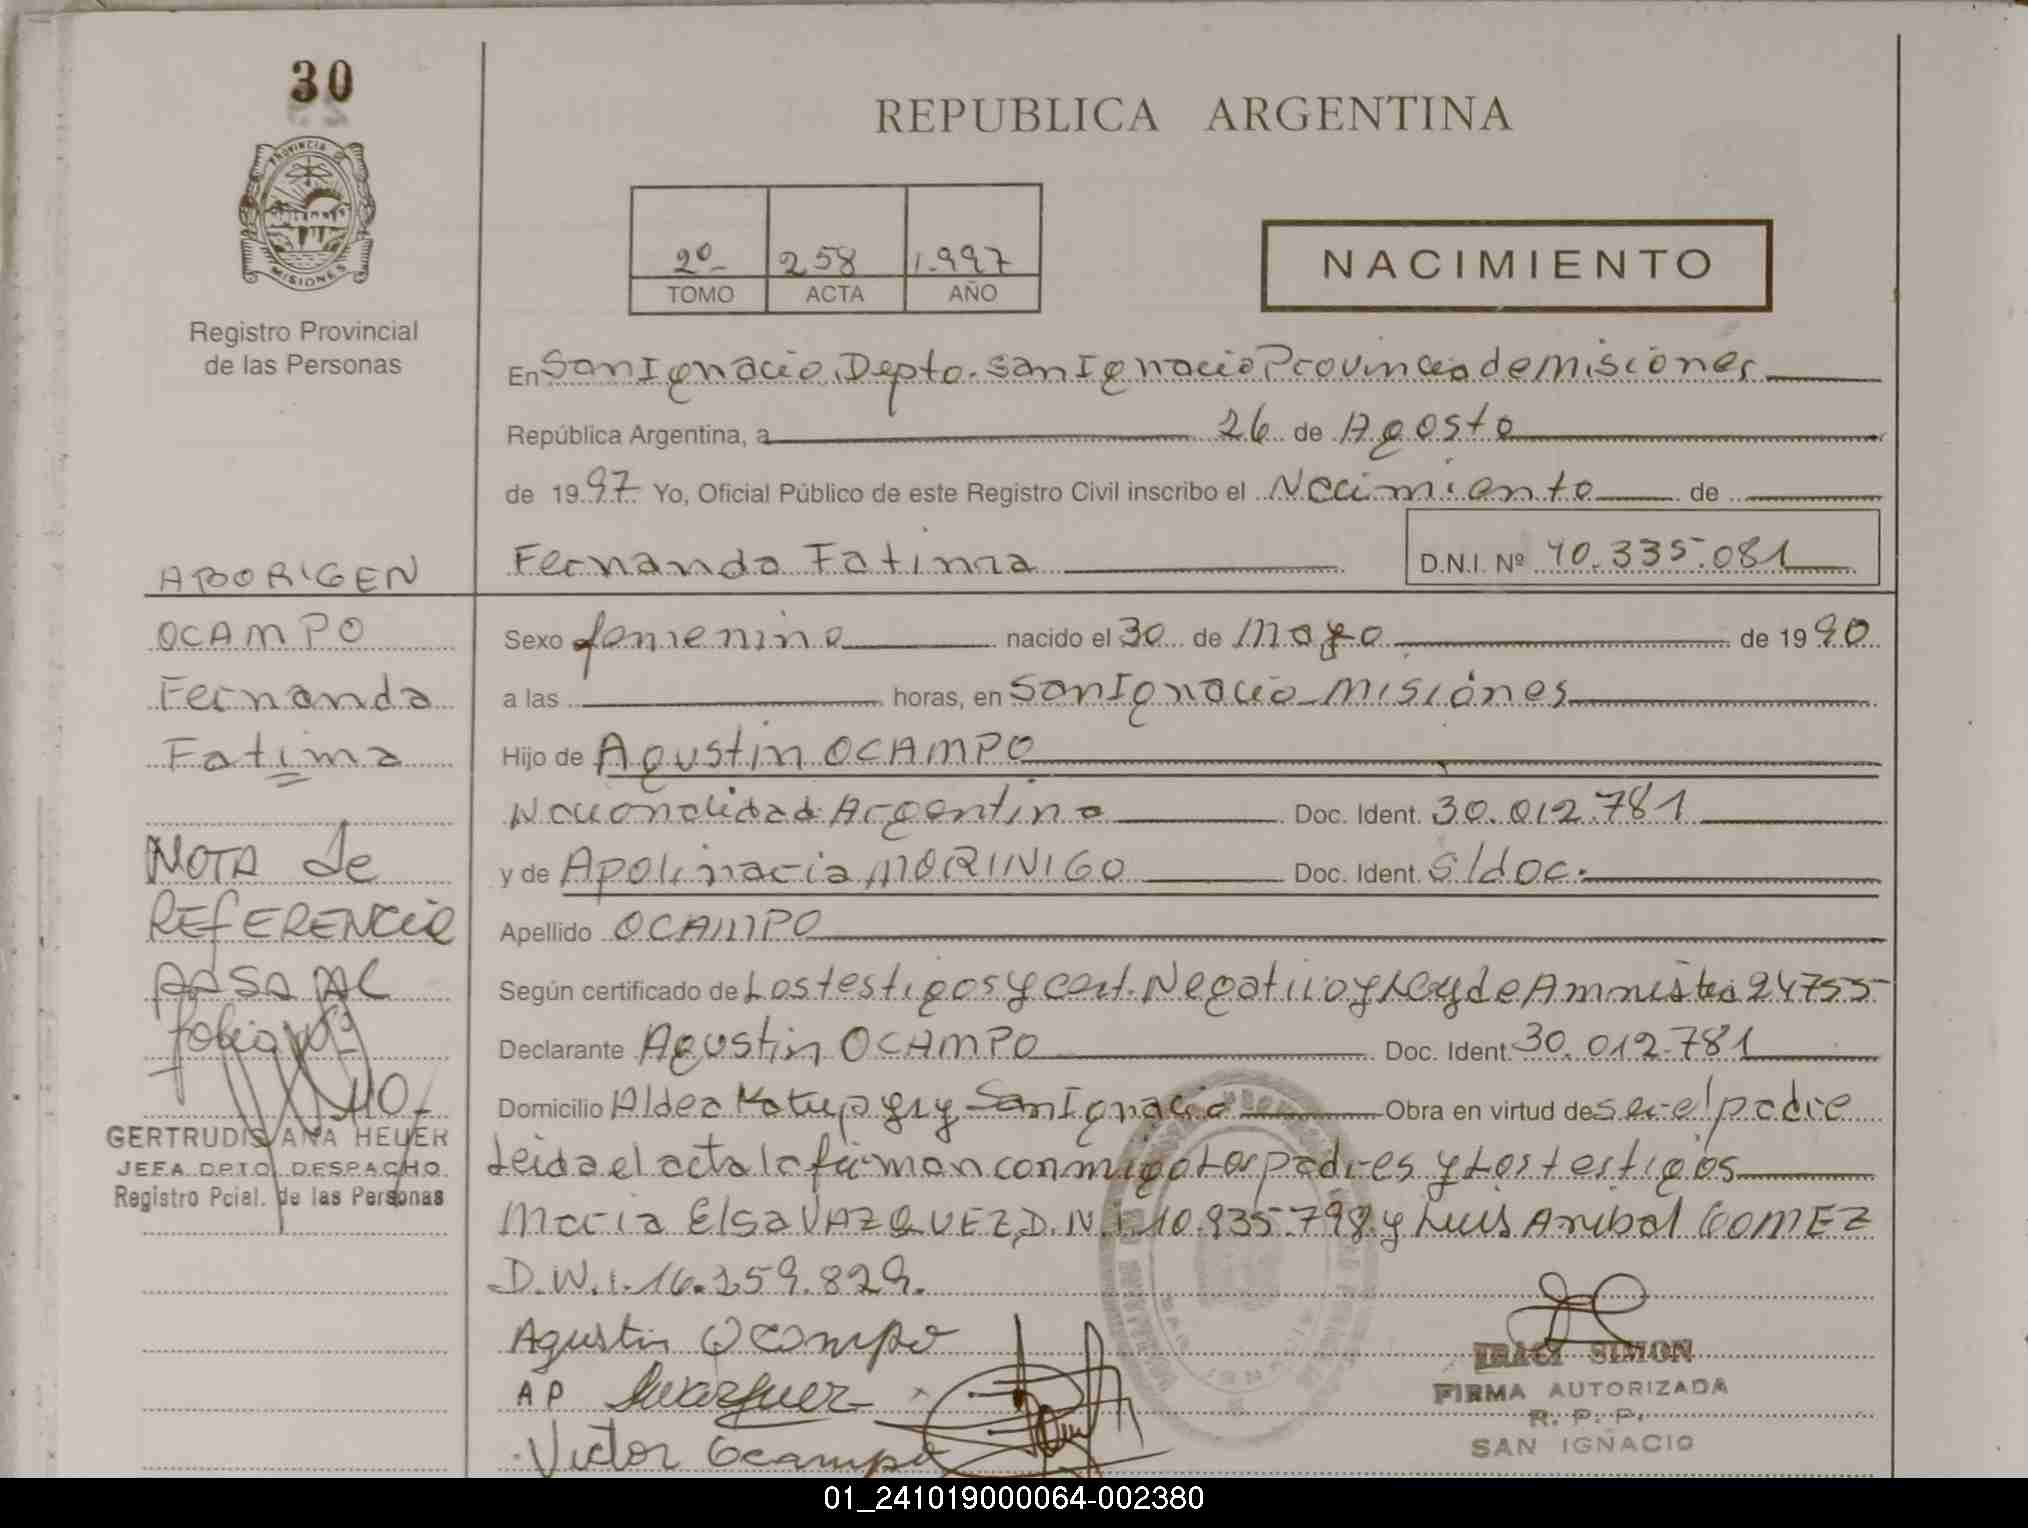 30
PROVINCIA DE
MISIONES
Registro Provincial
de las Personas
REPUBLICA ARGENTINA
2º 258 1.997
TOMO ACTA AÑO
NACIMIENTO
En San Ignacio, Depto. San Ignacio Provincia de Misiones
República Argentina, a 26 de Agosto
de 1997 Yo, Oficial Público de este Registro Civil inscribo el Nacimiento de
Fernanda Fatima D.N.I. Nº 40.335.081
Sexo femenino nacido el 30 de Mayo de 1990
a las horas, en San Ignacio Misiones
Hijo de Agustin OCAMPO
Nacionalidad Argentina Doc. Ident. 30.012.781
y de Apolinaria MORINIGO Doc. Ident. S/doc.
Apellido OCAMPO
Según certificado de Los testigos y cert. Negativo y Ley de Amnistia 24755
Declarante Agustin OCAMPO Doc. Ident. 30.012.781
Domicilio Aldea Katupyry San Ignacio Obra en virtud de ser el padre
Leida el acta la firman conmigo Los padres y Los testigos
Maria Elsa VAZQUEZ, D.N.I. 10.935.798 y Luis Anibal GOMEZ
D.N.I. 16.359.829.
Agustin Ocampo
AP
Victor Ocampo
IRACI SIMON
FIRMA AUTORIZADA
R. P. P.
SAN IGNACIO
ABORIGEN
OCAMPO
Fernanda
Fatima
NOTA de
REFERENCIA
PASA AL
folio Nº
110
GERTRUDIS ANA HEUER
JEFA DPTO. DESPACHO
Registro Pcial. de las Personas
01_241019000064-002380